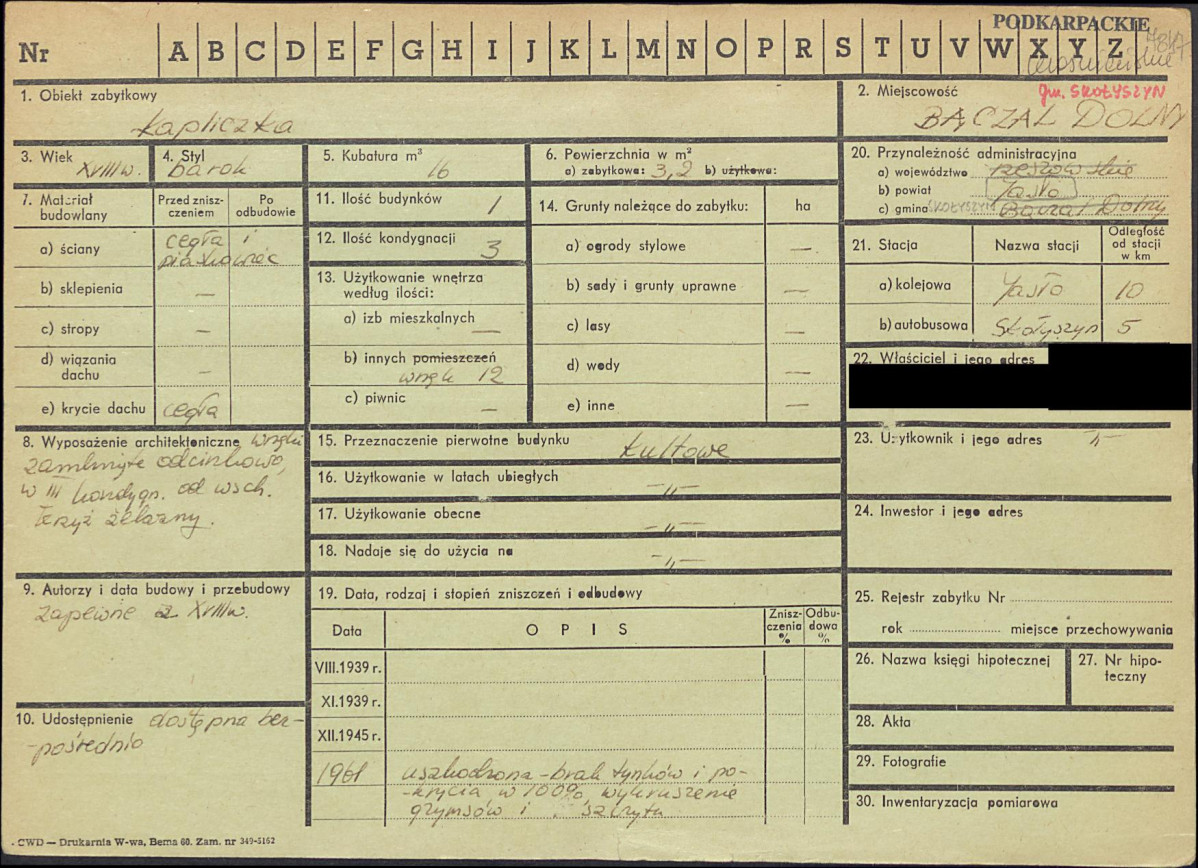 PODKARPACKIE
Nr A B C D E F G H I J K L M N O P R S T U V W X Y Z
gm. SKOŁYSZYN
1. Obiekt zabytkowy
Kapliczka
2. Miejscowość
BĄCZAL DOLNY
3. Wiek
XVIII w.
4. Styl
barok
5. Kubatura m³
16
6. Powierzchnia w m²
a) zabytkowa: 3,2 b) użytkowa:
7. Materiał budowlany
Przed zniszczeniem
Po odbudowie
a) ściany cegła i piaskowiec
b) sklepienia —
c) stropy —
d) wiązania dachu —
e) krycie dachu cegła
8. Wyposażenie architektoniczne wnęki
zamknięte odcinkowo,
w III kondygn. od wsch.
krzyż żelazny.
9. Autorzy i data budowy i przebudowy
zapewne z XVIII w.
10. Udostępnienie dostępna bez-
-pośrednio
11. Ilość budynków 1
12. Ilość kondygnacji 3
13. Użytkowanie wnętrza
według ilości:
a) izb mieszkalnych —
b) innych pomieszczeń
wnęk 12
c) piwnic —
14. Grunty należące do zabytku: ha
a) ogrody stylowe —
b) sady i grunty uprawne —
c) lasy —
d) wody —
e) inne —
15. Przeznaczenie pierwotne budynku kultowe
16. Użytkowanie w latach ubiegłych —„—
17. Użytkowanie obecne —„—
18. Nadaje się do użycia na —„—
19. Data, rodzaj i stopień zniszczeń i odbudowy
Data
OPIS
Zniszczenia %
Odbudowa %
VIII.1939 r.
XI.1939 r.
XII.1945 r.
1961 uszkodzona - brak tynków i po-
-krycia w 100%, wykruszenie
gzymsów i szczytu
20. Przynależność administracyjna
a) województwo rzeszowskie
b) powiat Jasło
c) gmina SKOŁYSZYN Bączal Dolny
21. Stacja
Nazwa stacji
Odległość od stacji w km
a) kolejowa Jasło 10
b) autobusowa Skołyszyn 5
22. Właściciel i jego adres
23. Użytkownik i jego adres —„—
24. Inwestor i jego adres
25. Rejestr zabytku Nr
rok miejsce przechowywania
26. Nazwa księgi hipotecznej
27. Nr hipoteczny
28. Akta
29. Fotografie
30. Inwentaryzacja pomiarowa
CWD — Drukarnia W-wa, Bema 60. Zam. nr 349-5162